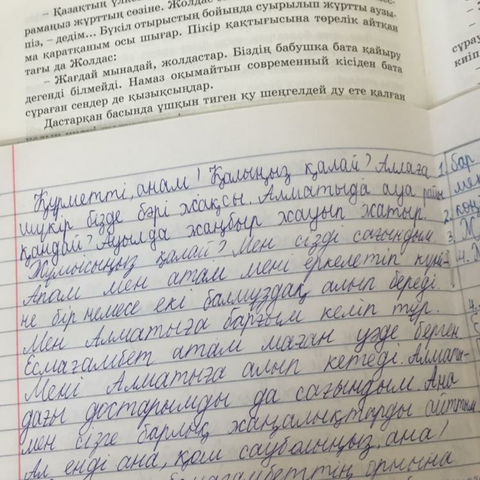 – Қазақтың
рамаңыз жұрттың сөзіне. Жолдас
піз, – дедім... Бүкіл отырыстың бойында суырылып жұртты аузы-
ма қаратқаным осы шығар. Пікір қақтығысына төрелік айтқан
тағы да Жолдас:
– Жағдай мынадай, жолдастар. Біздің бабушка бата қайыру
дегенді білмейді. Намаз оқымайтын современный кісіден бата
сұраған сендер де қызықсыңдар.
Дастарқан басында ұшқын тиген қу шеңгелдей ду ете қалған
сұрау
киіп
Құрметті, анам! Қалыңыз қалай? Аллаға
шүкір бізде бәрі жақсы. Алматыда ауа райы
қандай? Ауылда жаңбыр жауып жатыр.
Жұмысыңыз қалай? Мен сізді сағындым
Апам мен атам мені еркелетіп күні-
не бір немесе екі балмұздақ алып береді.
Мен Алматыға барғым келіп тұр.
Есмағамбет атам маған уәде берген
Мені Алматыға алып кетеді. Алматы-
дағы достарымды да сағындым. Ана
мен сізге барлық жаңалықтарды айттым
Ал енді ана, қош саубалыңыз, ана!
орнына
1. бар
мен
2. көңі
3. Ж
4. Х
4.